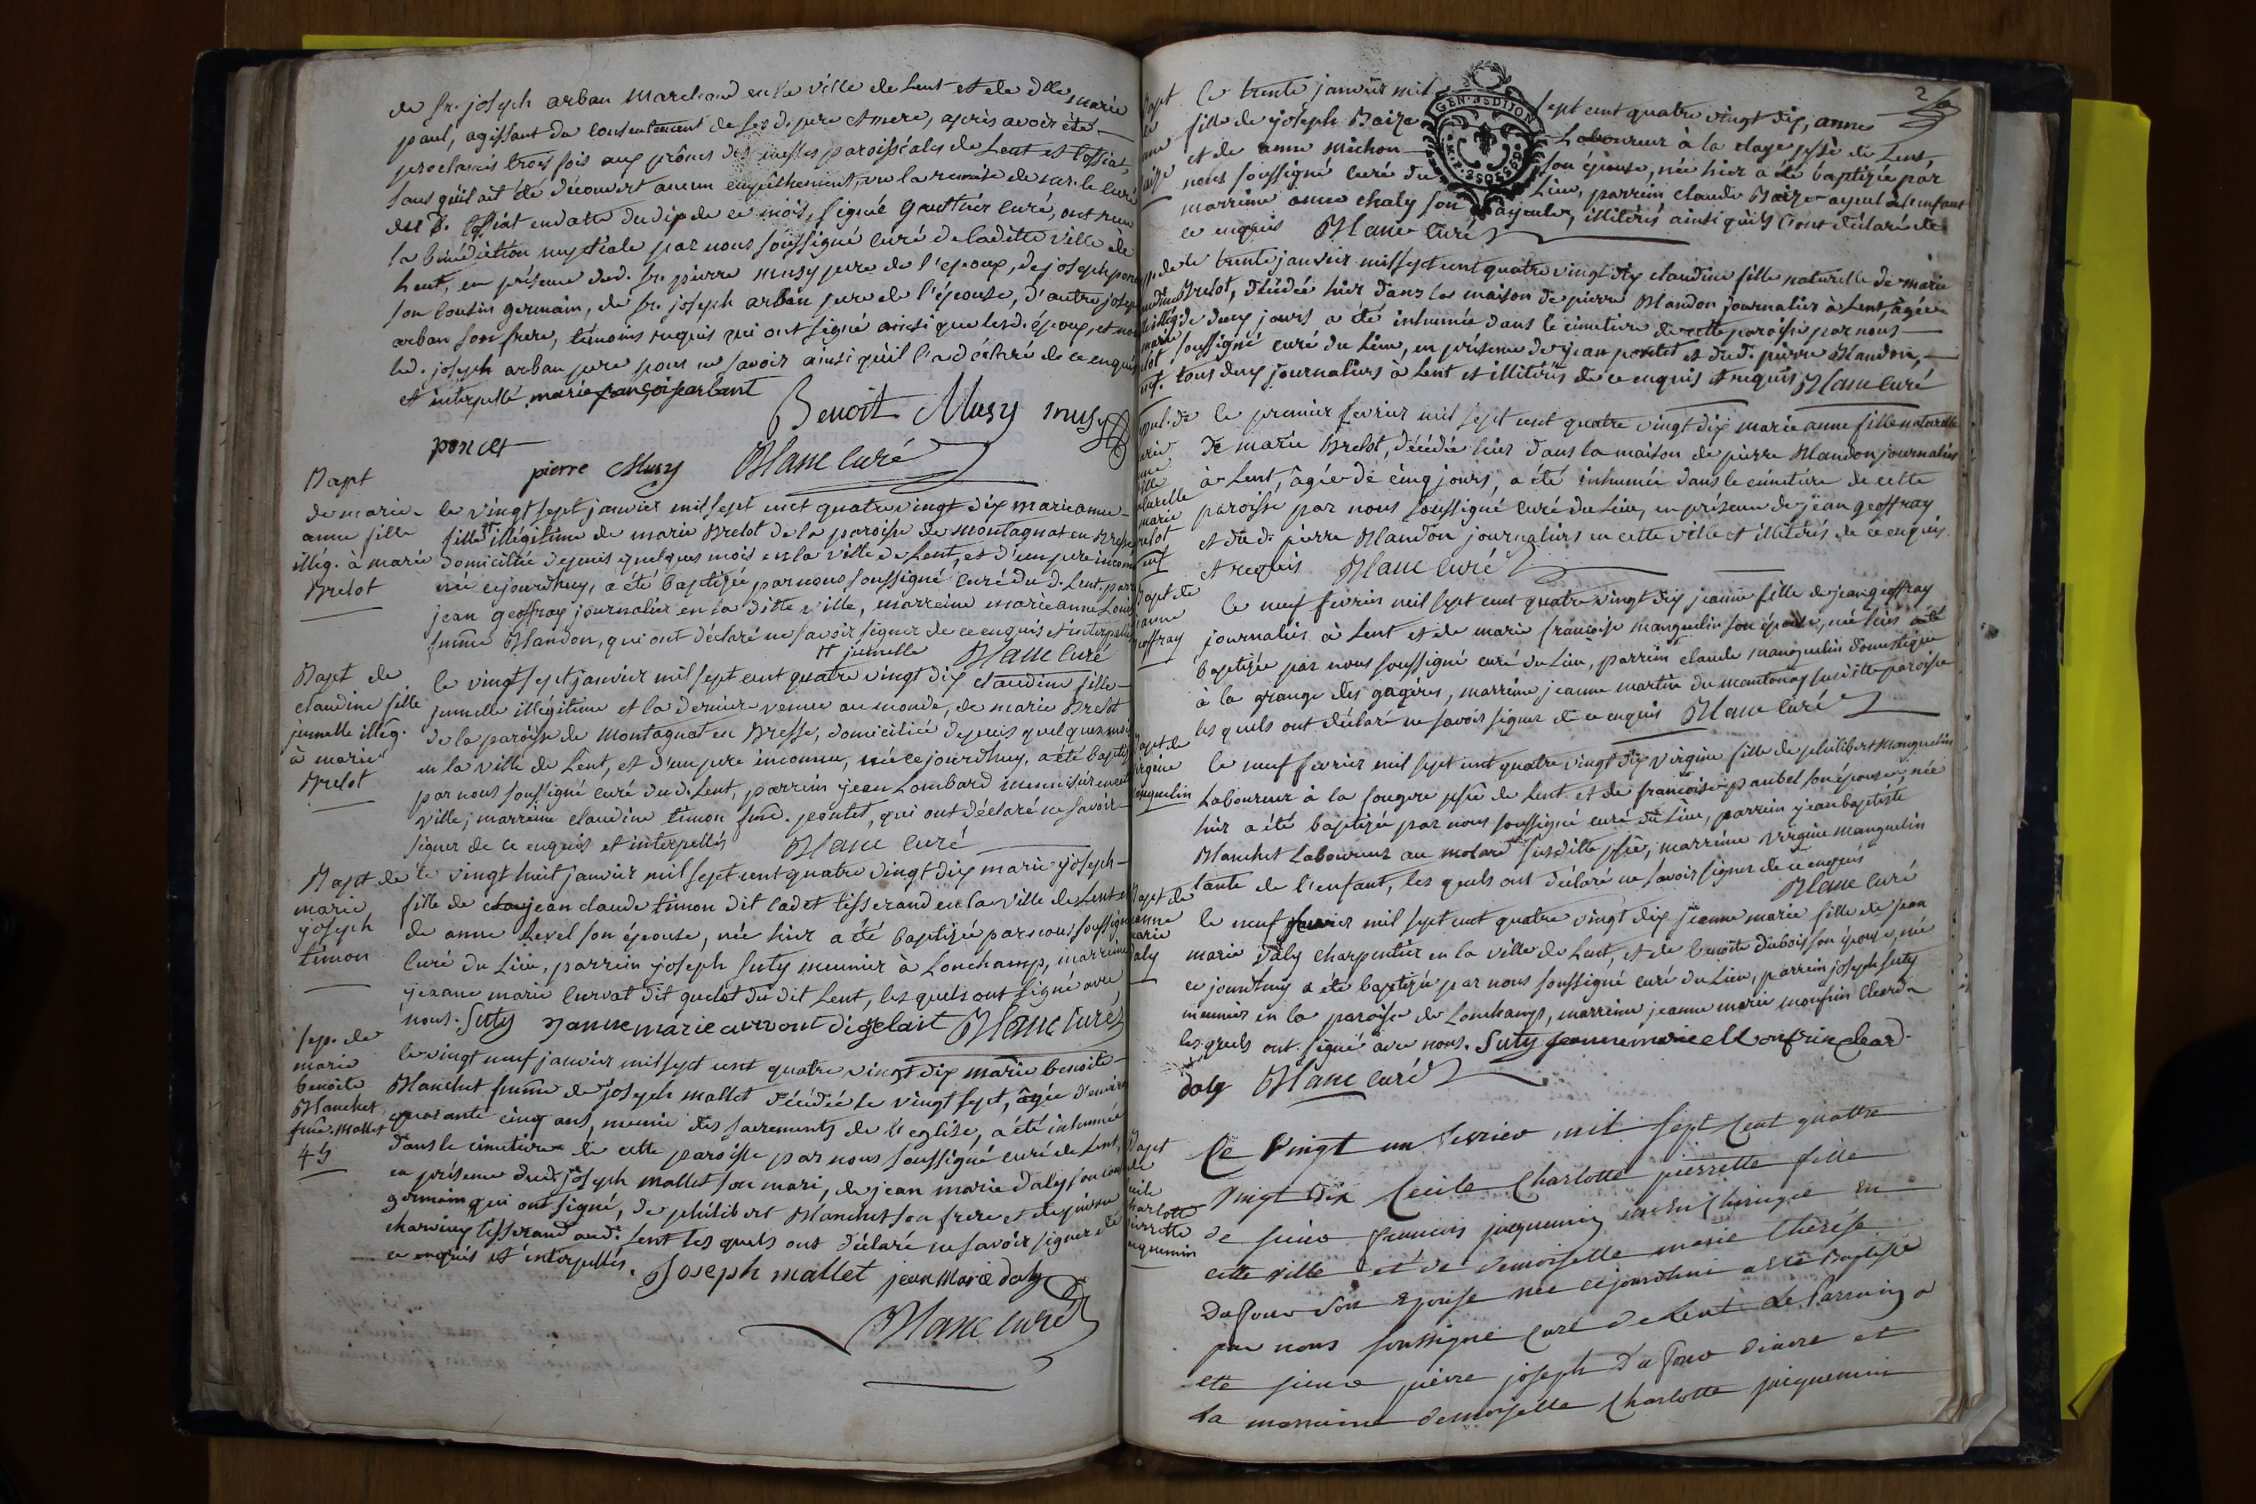 de sr. joseph arban marchand en la ville de Lent et de dlle marie
paul, agissant du consentement de ses d. pere et mere, après avoir été
proclamés trois fois aux prônes des messes paroissiales de Lent et
sans qu'il ait été découvert aucun empêchement, vu la remise de mr. le curé
en datte du dix de ce mois, signé curé, ont reçu
la bénédiction nuptiale par nous soussigné curé de laditte ville de
Lent, en présence dud. sr. pierre musy pere de l'epoux, de joseph
son cousin germain, de sr. joseph arban pere de l'épouse, d'autre joseph
arban son frere, témoins requis qui ont signé ainsi que lesd. époux, et non
led. joseph arban pere pour ne savoir ainsi qu'il l'a déclaré de ce enquis
et interpellé marie françoise arbant
Benoit Musy musy
poncet
pierre Musy Blanc curé
Bapt
de marie
anne fille
illég. à marie
Brelot
le vingt sept janvier mil sept cent quatre vingt dix marie anne
fille illégitime de marie Brelot de la paroisse de montagnat en Bresse
domiciliée depuis quelques mois en la ville de Lent, et d'un pere inconnu
née cejourdhuy, a été baptizée par nous soussigné curé du d. Lent, parr
jean geoffray journalier en la ditte ville, marreine marie anne
femme Blandon, qui ont déclaré ne savoir signer de ce enquis et interpellés
tt jumelle Blanc curé
Bapt de
claudine fille
jumelle illég.
à marie
Brelot
le vingt sept janvier mil sept cent quatre vingt dix claudine fille
jumelle illégitime et la derniere venue au monde, de marie Brelot
de la paroisse de montagnat en Bresse, domiciliée depuis quelques mois
en la ville de Lent, et d'un pere inconnu, née cejourdhuy, a été baptizée
par nous soussigné curé du d. Lent, parrein jean Lombard
ville, marreine claudine timon fme. pontet, qui ont déclaré ne savoir
signer de ce enquis et interpellés Blanc curé
Bapt de
marie
joseph
timon
le vingt huit janvier mil sept cent quatre vingt dix marie joseph
fille de jean claude timon dit cadet tisserand en la ville de Lent et
de anne Levet son épouse, née hier a été baptizée par nous soussigné
curé du Lieu, parrein joseph suty meunier à Lonchamp, marreine
jeanne marie curvat dit quelat du dit Lent, lesquels ont signé avec
nous. Suty Blanc curé
sep. de
marie
benoite
Blanchet
fme. Mallet
45
le vingt neuf janvier mil sept cent quatre vingt dix marie benoite
Blanchet femme de joseph mallet décédée le vingt sept, âgée d'environ
quarante cinq ans, munie des sacrements de l'eglise, a été inhumée
dans le cimetiere de cette paroisse par nous soussigné curé de Lent,
en présence dud. joseph mallet son mari, de jean marie daly son cousin
germain qui ont signé, de philibert Blanchet son frere et de
tisserand aud. Lent les quels ont déclaré ne savoir signer de
ce enquis et interpellés.
Joseph mallet jean Marie daly
Blanc curé
2
GEN. DE DIJON
le trente janvier mil sept cent quatre vingt dix, anne
fille de joseph Baize Laboureur à la plage psse de Lent,
et de anne michon son épouse, née hier a été baptizée par
nous soussigné curé du Lieu, parrein claude Baize ayeul de l'enfant
marreine anne chaly son ayeule, illiterés ainsi qu'ils l'ont déclaré de
ce enquis Blanc curé
le trente janvier mil sept cent quatre vingt dix claudine fille naturelle de marie
Brelot, décédée hier dans la maison de pierre Blandon journalier à Lent, âgée
de deux jours a été inhumée dans le cimetiere de cette paroisse par nous
soussigné curé du Lieu, en présence de jean pontet et dud. pierre Blandon,
tous deux journaliers à Lent et illitérés de ce enquis et requis Blanc curé
le premier fevrier mil sept cent quatre vingt dix marie anne fille naturelle
de marie Brelot, décédée hier dans la maison de pierre Blandon journalier
à Lent, âgée de cinq jours, a été inhumée dans le cimetiere de cette
paroisse par nous soussigné curé du Lieu, en présence de jean geoffray
et du d. pierre Blandon journaliers en cette ville et illitérés de ce enquis
et requis Blanc curé
Bapt de
jeanne
geoffray
le neuf fevrier mil sept cent quatre vingt dix jeanne fille de jean geoffray
journalier à Lent et de marie françoise manguelin son épouse, née hier a été
baptizée par nous soussigné curé du Lieu, parrein claude manguelin domestique
à la grange des gagères, marreine jeanne martin du mantonay susditte paroisse
les quels ont déclaré ne savoir signer de ce enquis Blanc curé
Bapt de
virgine
manguelin
le neuf fevrier mil sept cent quatre vingt dix virgine fille de philibert manguelin
Laboureur à la fougere psse de Lent et de françoise paubel son épouse, née
hier a été baptizée par nous soussigné curé du Lieu, parrein jean baptiste
Blanchet Laboureur au molard susditte psse, marreine virgine manguelin
tante de l'enfant, les quels ont déclaré ne savoir signer de ce enquis
Blanc curé
Bapt de
jeanne
marie
daly
le neuf fevrier mil sept cent quatre vingt dix jeanne marie fille de jean
marie daly charpentier en la ville de Lent, et de benoite dubois son épouse, née
ce jourdhuy a été baptizée par nous soussigné curé du Lieu, parrein joseph suty
meunier en la paroisse de Lonchamp, marreine jeanne marie monfrin
les quels ont signé avec nous. Suty jeanne marie Monfrin
daly Blanc curé
Bapt
de
cecile
charlotte
pierrette
jacquemin
Le vingt un fevrier mil sept cent quattre
vingt dix Cecile Charlotte pierrette fille
de sieur francois jacquemin chirurgien en
cette ville et de demoiselle marie therése
Dufour son Epouse née cejourdhui a été Baptisée
par nous soussigné Curé de Lent Le Parrain a
eté sieur pierre joseph Dufour diacre et
La marraine demoiselle Charlotte jacquemin